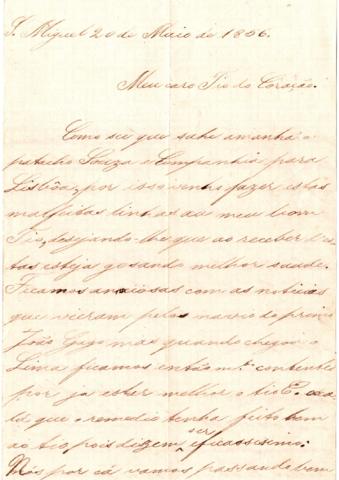 S. Miguel 20 de Maio de 1856.
Meu caro Tio do Coração.
Como sei que sahe amanhã o
patacho Souza e Companhia para
Lisbôa, por isso venho fazer estas
mal feitas linhas ao meu bom
Tio, desejando-lhe que ao receber d'es
tas esteja gosando melhor saude.
Ficamos anciosas com as noticias
que vieram pelos navio do primo
João Gago mas quando chegou o
Lima ficamos então m.to contentes
por ja estar melhor o tio E.
que o remedio tenha feito bem
ao tio, pois dizem ser eficassissimo.
Nós por cá vamos passando bem